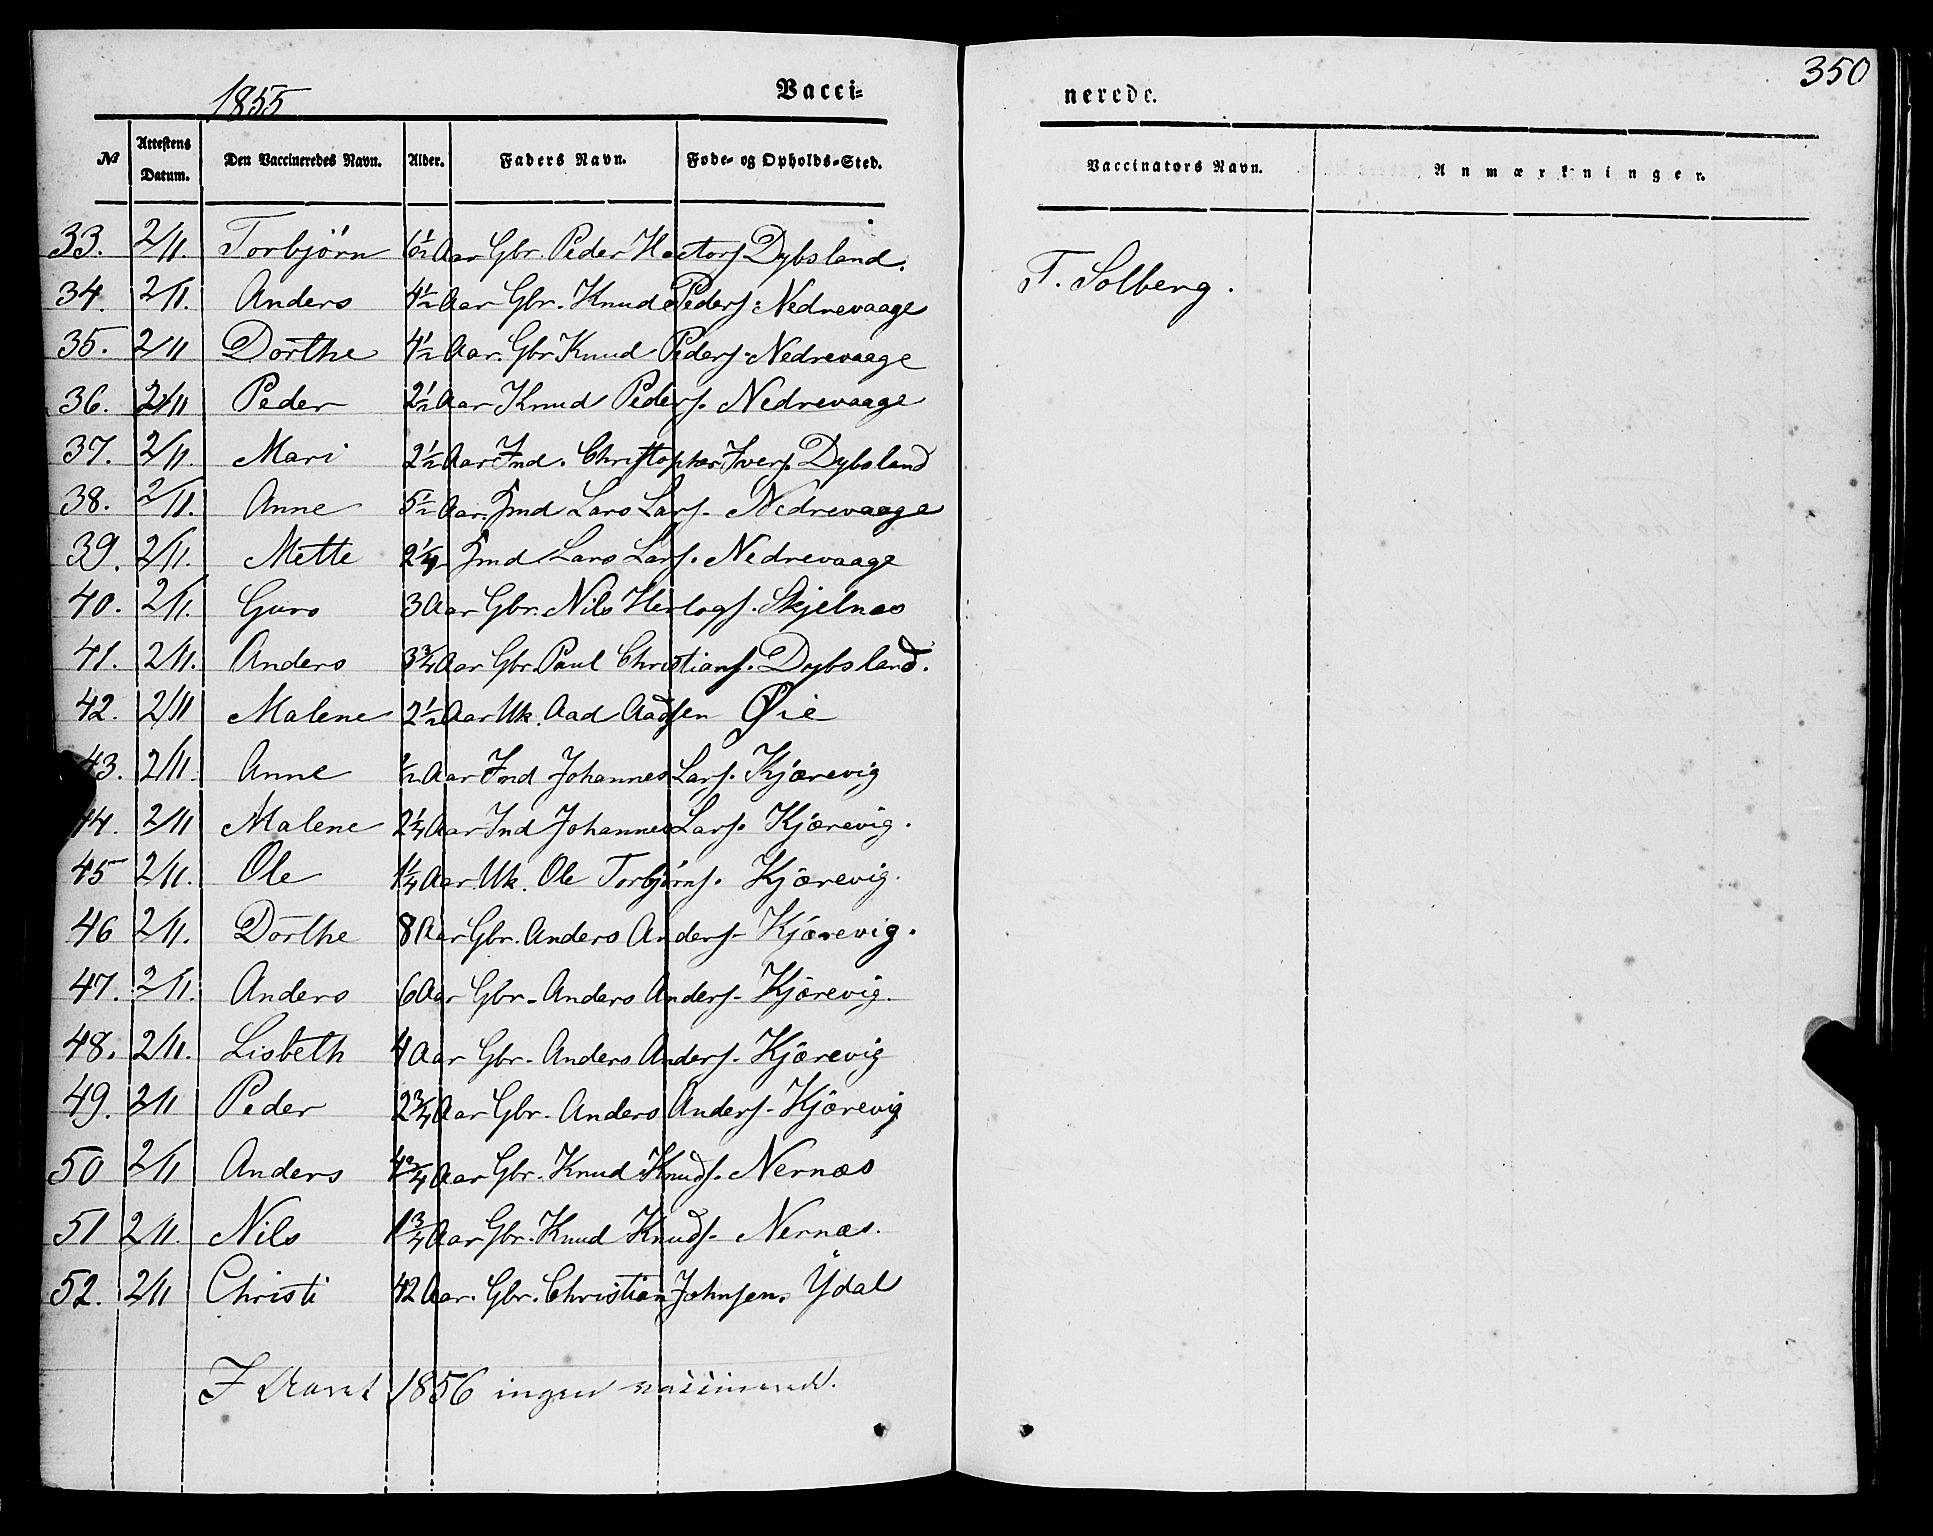 350
1855
Vacci-
nerede.
№ Attestens Datum. Den Vaccineredes Navn. Alder. Faders Navn. Føde- og Opholds-Sted.
Vaccinators Navn. Anmærkninger.
33. 2/11. Torbjörn 6½ Aar Gbr. Peder Hectors. Dybsland.
T. Solberg.
34. 2/11. Anders 4½ Aar Gbr. Knud Peders: Nedrevaage
35. 2/11 Dorthe 4½ Aar. Gbr Knud Peders: Nedrevaage
36. 2/11 Peder 2½ Aar Knud Peders. Nedrevaage
37. 2/11. Mari 2½ Aar Ind. Christopher Ivers. Dybsland
38. 2/11. Anne 5½ Aar. Ind Lars Lars. Nedrevaage
39. 2/11. Mette 2¼ Ind Lars Lars. Nedrevaage
40. 2/11. Guro 3 Aar Gbr. Nils Herlogs. Skjelnæs
41. 2/11. Anders 3¾ Aar Gbr. Paul Christians. Dybsland.
42. 2/11 Malene 2½ Aar Uk. Aad Aadsen Øie
43. 2/11. Anne ½ Aar Ind Johannes Lars. Kjærevig
44. 2/11 Malene 2¼ Aar Ind Johannes Lars. Kjærevig.
45 2/11. Ole 1¼ Aar. Uk. Ole Torbjörns. Kjærevig.
46 2/11. Dorthe 8 Aar Gbr. Anders Anders- Kjærevig.
47. 2/11. Anders 6 Aar Gbr- Anders Anders- Kjærevig.
48. 2/11. Lisbeth 4 Aar Gbr- Anders Anders- Kjærevig
49. 2/11 Peder 2¾ Aar Gbr- Anders Anders- Kjærevig
50 2/11 Anders 4¾ Aar Gbr. Knud Knuds. Nernæs
51 2/11. Nils 1¾ Aar Gbr. Knud Knuds. Nernæs.
52. 2/11 Christi 42 Aar. Gbr. Christian Johnsen. Ydal
I Aaret 1856 ingen vaccinerede.